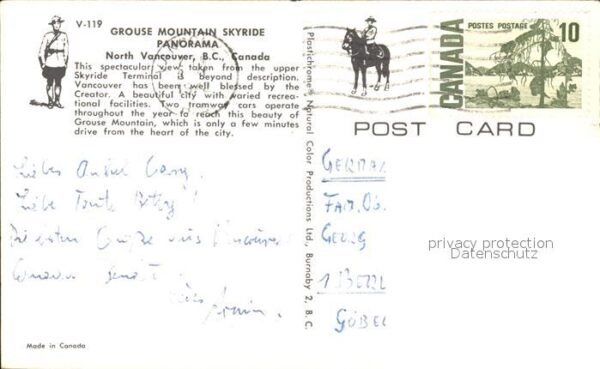 V-119
GROUSE MOUNTAIN SKYRIDE
PANORAMA
North Vancouver, B.C., Canada
This spectacular view taken from the upper
Skyride Terminal is beyond description.
Vancouver has been well blessed by the
Creator. A beautiful city with varied recrea-
tional facilities. Two tramway cars operate
throughout the year to reach this beauty of
Grouse Mountain, which is only a few minutes
drive from the heart of the city.
Liebes
Liebe Tante
Die besten Grüsse aus Vancouver
sendet
Made in Canada
Plastichrome® Natural Color Productions Ltd., Burnaby 2, B.C.
POSTES POSTAGE
10
CANADA
POST CARD
GERMAN
FAM.
GEORG
privacy protection
Datenschutz